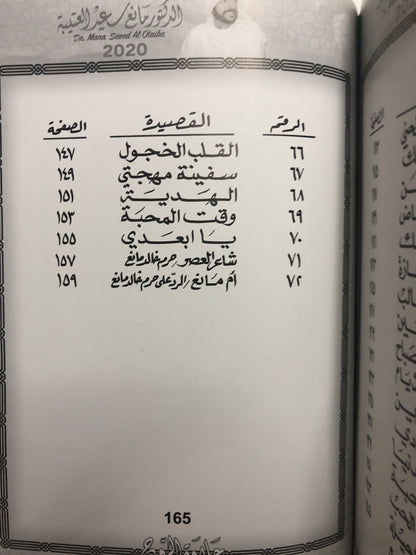 الدكتور مانع سعيد العتيبة
Dr. Mana Saeed Al Otaiba
2020
الرقم القصيدة الصفحة
٦٦ القلب الخجول ١٤٧
٦٧ سفينة مهجتي ١٤٩
٦٨ الهدية ١٥١
٦٩ وقت المحبة ١٥٣
٧٠ يا ابعدي ١٥٥
٧١ شاعر العصر/حرم خالد مانع ١٥٧
٧٢ أم مانع/الرد على حرم خالد مانع ١٥٩
165